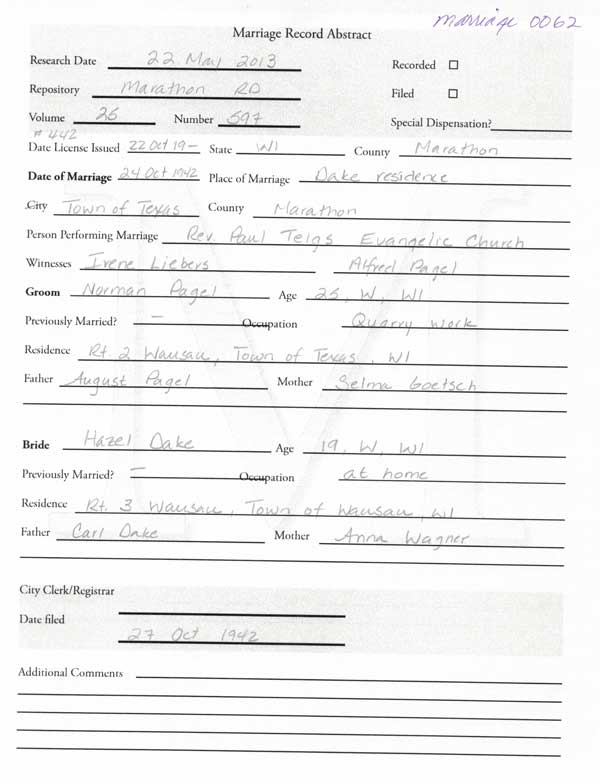 marriage 0062
Marriage Record Abstract
Research Date 22 May 2013 Recorded ☐
Repository Marathon RD Filed ☐
Volume 25 Number 597 Special Dispensation?
# 442
Date License Issued 22 Oct 19- State WI County Marathon
Date of Marriage 24 Oct 1942 Place of Marriage Dake residence
City Town of Texas County Marathon
Person Performing Marriage Rev. Paul Teigs Evangelic Church
Witnesses Irene Liebers Alfred Pagel
Groom Norman Pagel Age 25, W, WI
Previously Married? — Occupation Quarry work
Residence Rt. 2 Wausau, Town of Texas, WI
Father August Pagel Mother Selma Goetsch
Bride Hazel Dake Age 19, W, WI
Previously Married? — Occupation at home
Residence Rt. 3 Wausau, Town of Wausau, WI
Father Carl Dake Mother Anna Wagner
City Clerk/Registrar
Date filed
27 Oct 1942
Additional Comments